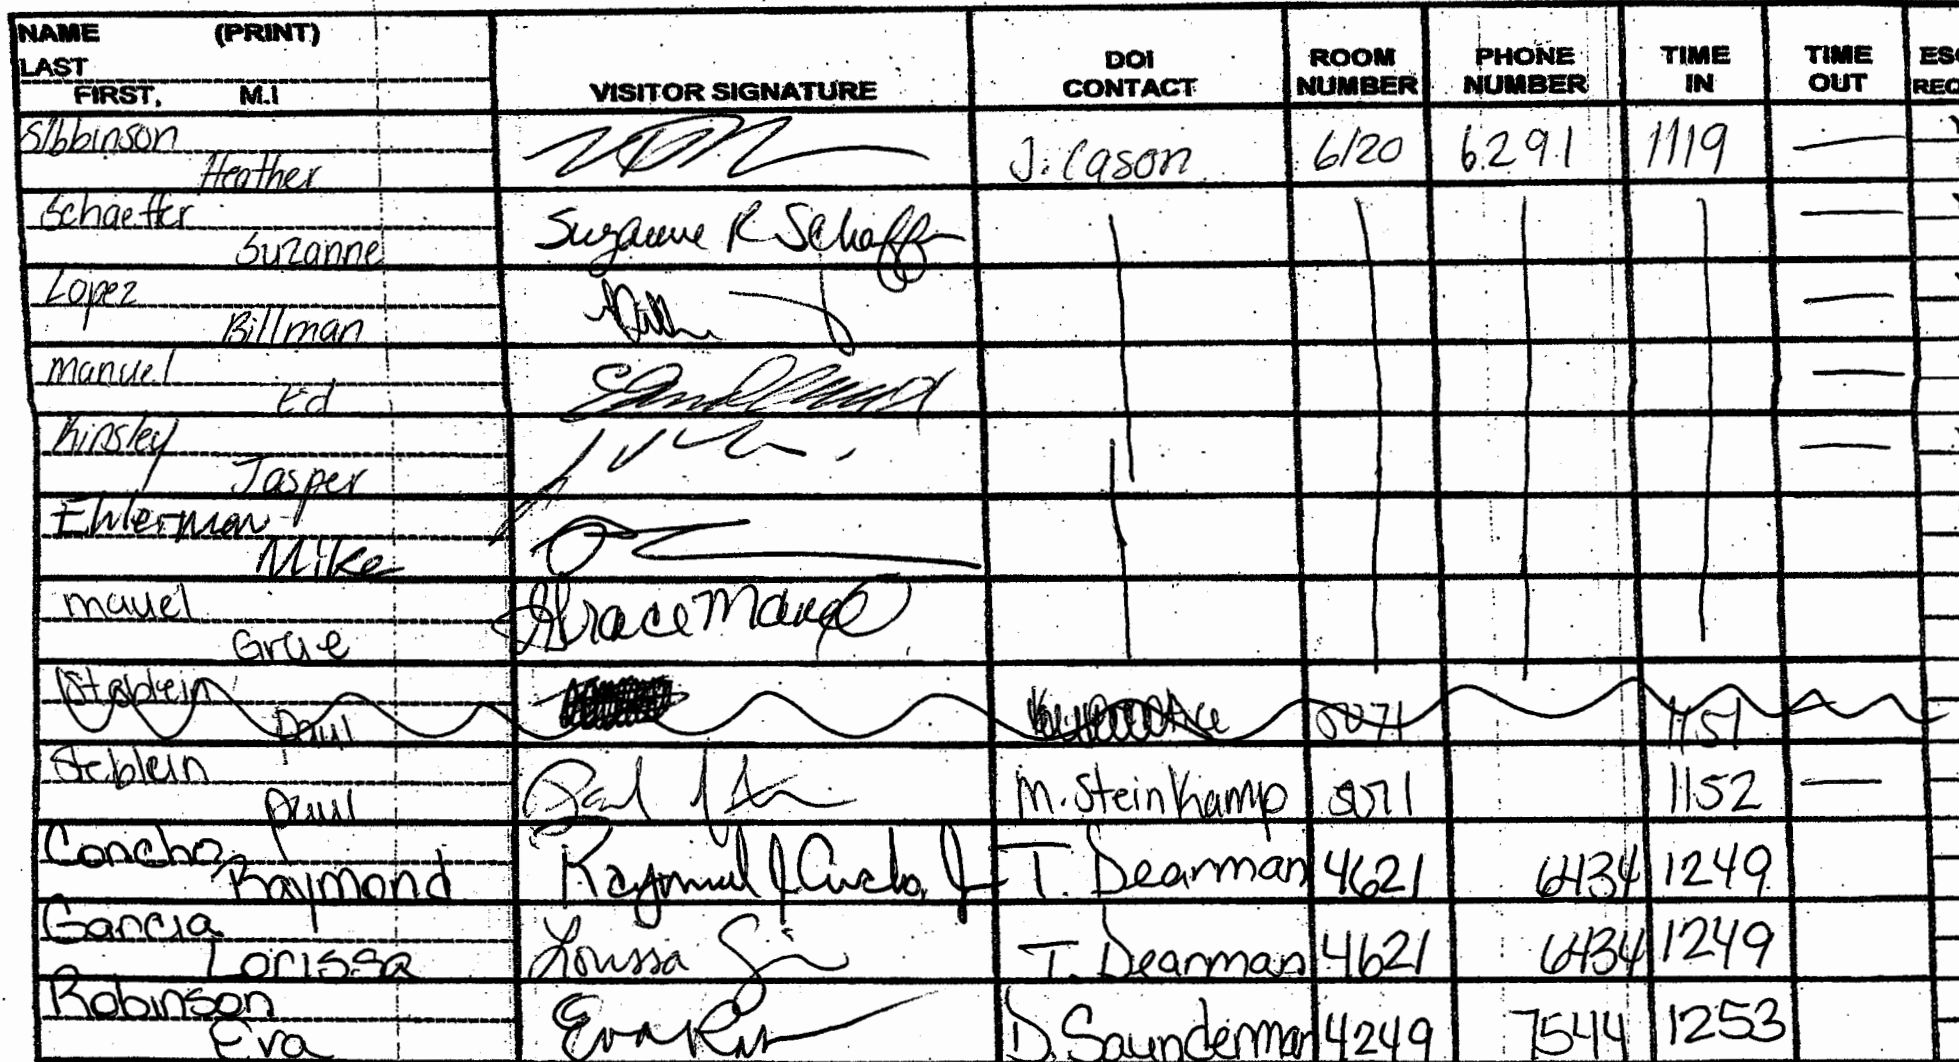 NAME (PRINT)
LAST
FIRST, M.I
VISITOR SIGNATURE
DOI CONTACT
ROOM NUMBER
PHONE NUMBER
TIME IN
TIME OUT
Sibbinson
Heather J. Cason 6120 6291 1119 —
Schaeffer Suzanne R Schaeffer —
Suzanne
Lopez —
Billman
Manuel —
Ed
Kinsley —
Jasper
Ehlerman
Mike
Mauel Grace Manuel
Grae
Stablein
Paul 5071 1151
Steblein
Paul M. Steinkamp 5071 1152 —
Concho,
Raymond T. Dearman 4621 6434 1249
Garcia
Lorissa Lorissa T. Dearman 4621 6434 1249
Robinson
Eva Eva D. Saunderman 4249 7544 1253